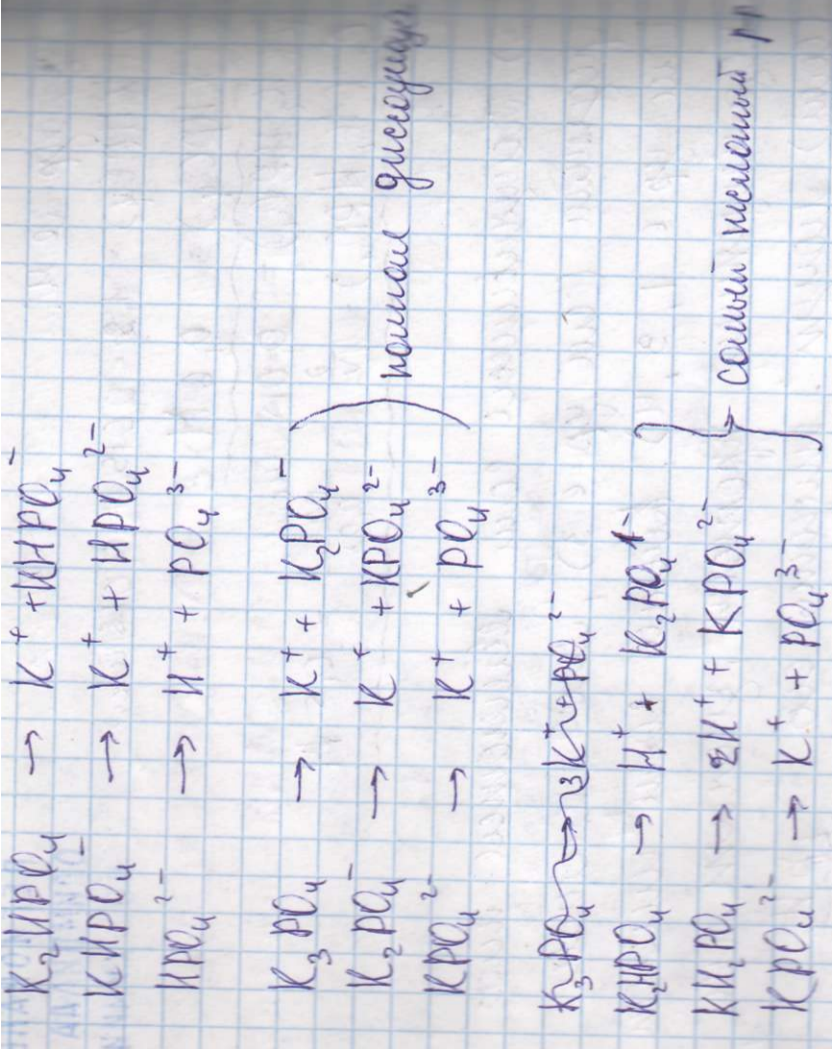 K₂HPO₄ → K⁺ + KHPO₄⁻
KHPO₄⁻ → K⁺ + HPO₄²⁻
HPO₄²⁻ → H⁺ + PO₄³⁻
K₃PO₄ → K⁺ + K₂PO₄⁻
K₂PO₄⁻ → K⁺ + KPO₄²⁻
KPO₄²⁻ → K⁺ + PO₄³⁻
полная
K₃PO₄ → 3K⁺ + PO₄²⁻
K₂HPO₄ → H⁺ + K₂PO₄¹⁻
KH₂PO₄ → 2H⁺ + KPO₄²⁻
KPO₄²⁻ → K⁺ + PO₄³⁻
самый